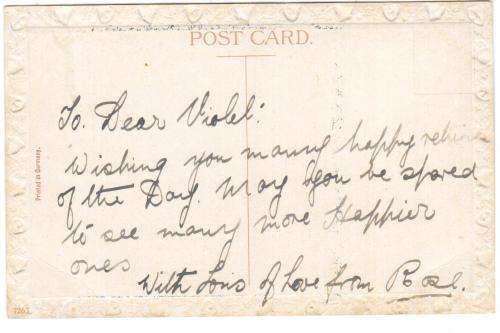 POST CARD.
To. Dear Violet.
Wishing you many happy returns
of the Day. May you be spared
to see many more Happier
ones
With Lots of Love from Rose.
Printed in Germany.
7267